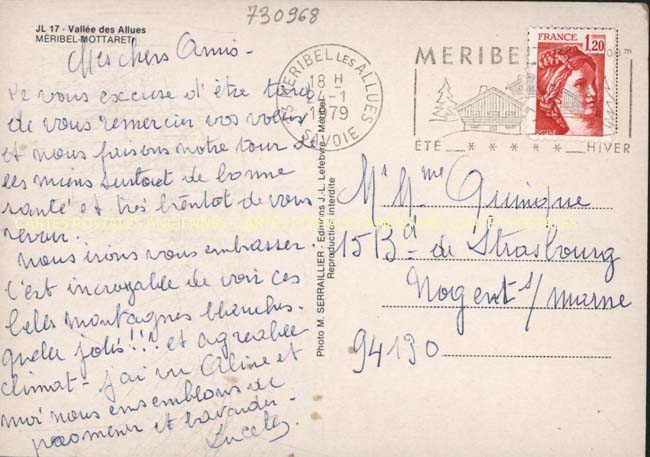 730968
JL 17 - Vallée des Allues
MÉRIBEL-MOTTARET
Mes chers Amis -
vous excuse d'être tard
de vous remercier vos voeux
et nous faisons notre tour de
les miens surtout de bonne
santé et très bientôt de vous
revoir.
nous irions vous embrasser.
c'est incroyable de voir ces
belles montagnes blanches.
quelle jolis!!! et agréable
climat - j'ai vu Aline et
moi nous ensemblons de
promener et bavarder -
Lucette
Photo M. SERRAILLIER - Editions J.-L. Lefebvre - Méribel
Reproduction interdite
MERIBEL LES ALLUES
18 H
-1
1979
SAVOIE
MERIBEL
ÉTÉ __ * * * * * __ HIVER
FRANCE
1,20
Mr Mme Guinique
15 Bd de Strasbourg
Nogent s/ marne
94130